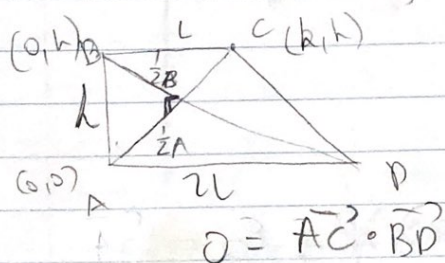 (0,h) B L C (k,h)
1/2B
h
1/2A
(0,0) A 2L D
0 = AC⃗ · BD⃗